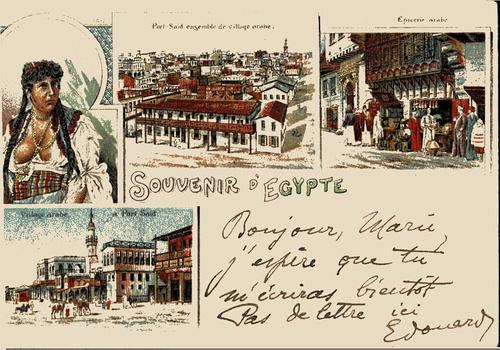 Port-Saïd ensemble de village arabe.
Epicerie arabe
SOUVENIR D'EGYPTE
Village arabe à Port Saïd
Bonjour, Marie,
j'espère que tu
m'écriras bientôt
Pas de lettre ici
Edouard